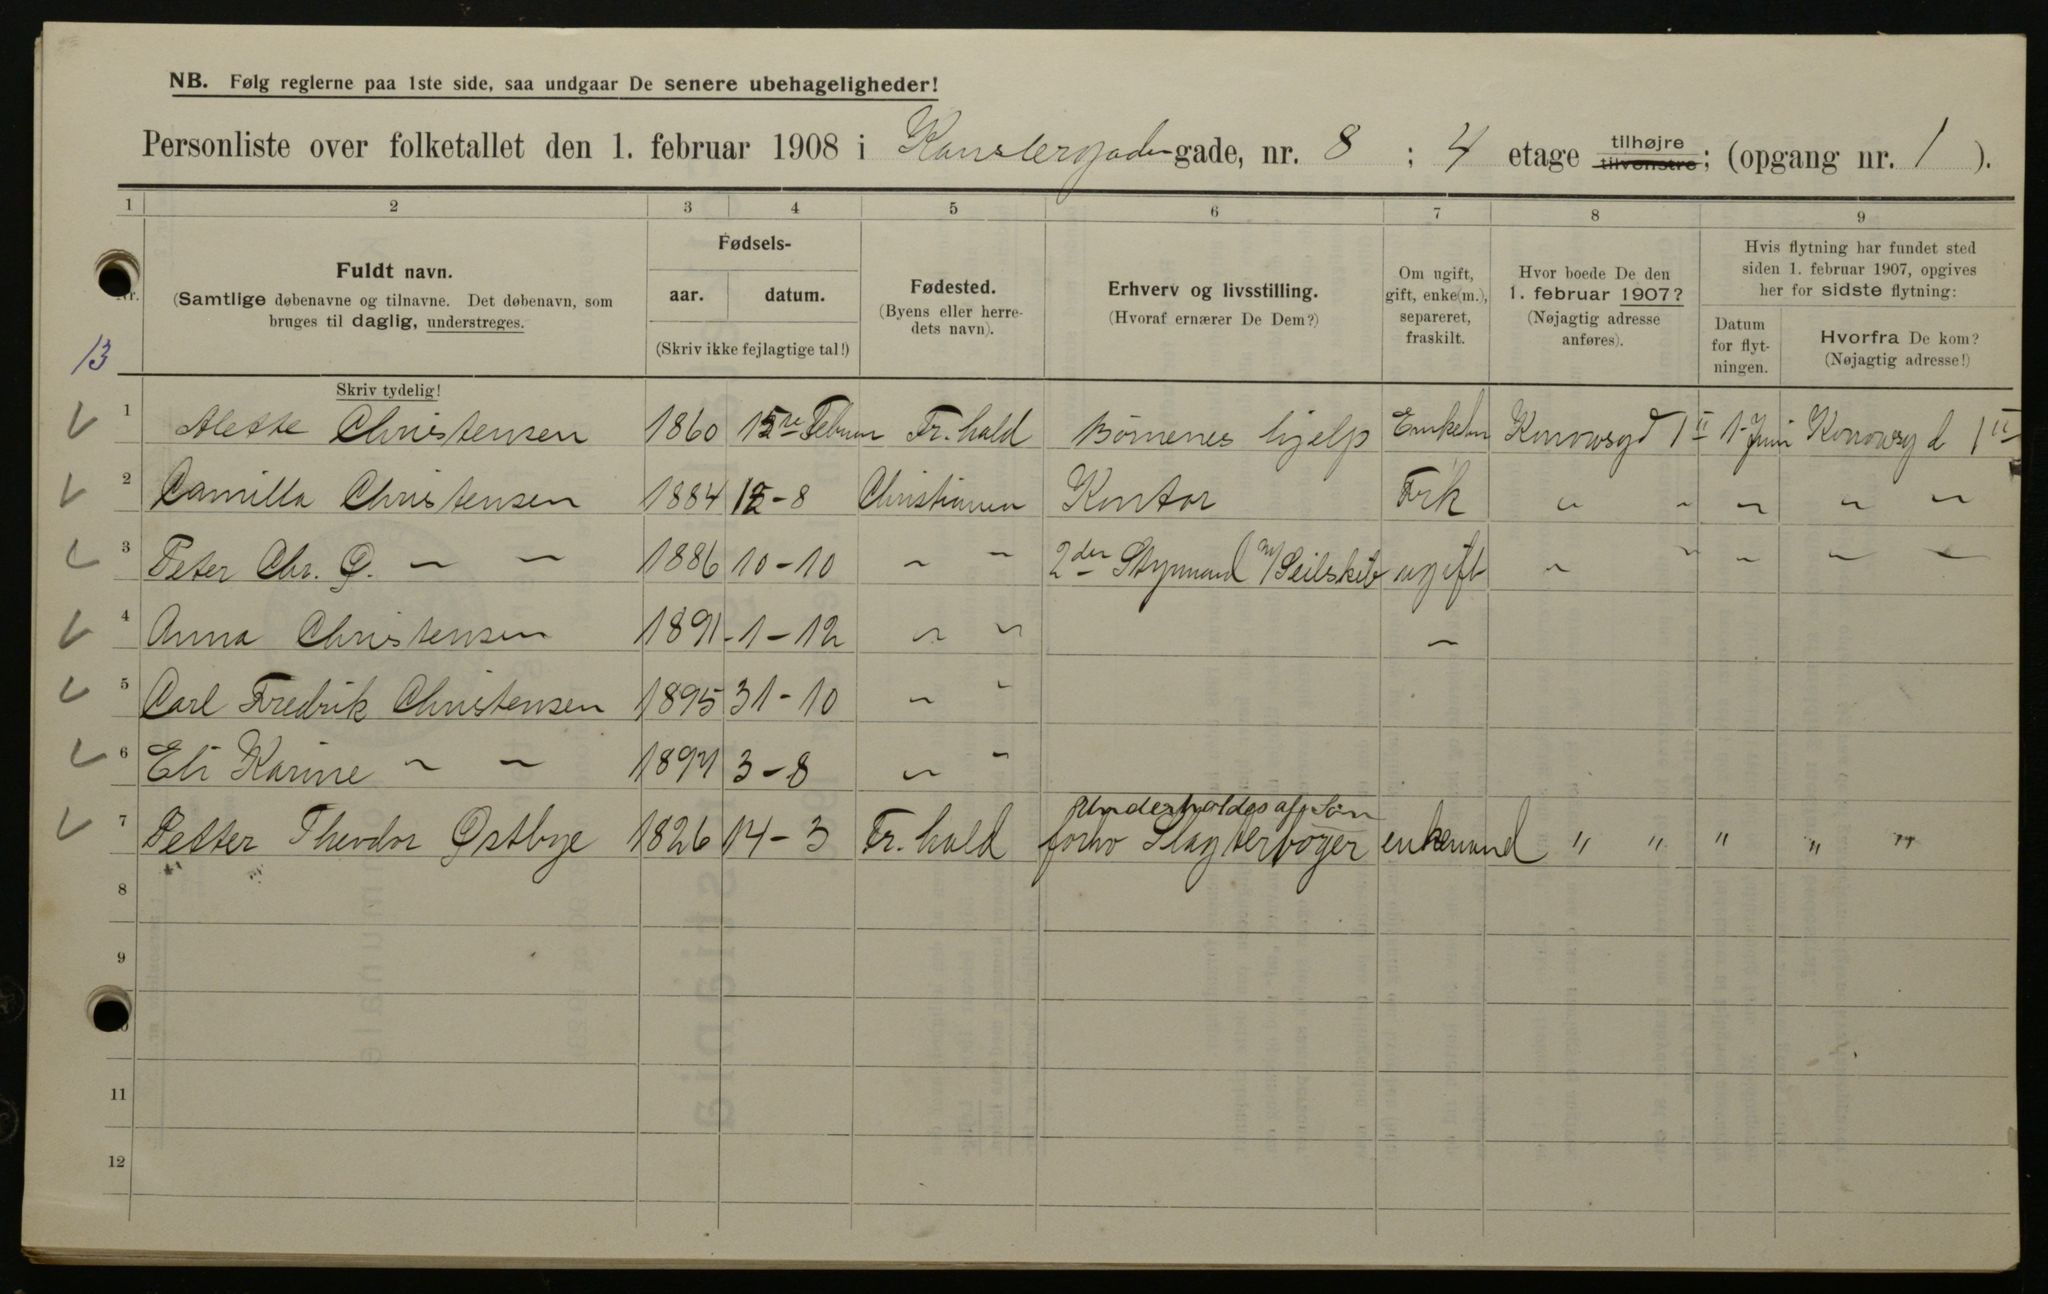 NB. Følg reglerne paa 1ste side, saa undgaar De senere ubehageligheder!
Personliste over folketallet den 1. februar 1908 i Kanslergaden gade, nr. 8 ; 4 etage tilhøjre tilvenstre; (opgang nr. 1 ).
1 2 3 4 5 6 7 8 9
Nr.
Fuldt navn.
(Samtlige døbenavne og tilnavne. Det døbenavn, som
bruges til daglig, understreges.
Skriv tydelig!
Fødsels-
aar. datum.
(Skriv ikke fejlagtige tal!)
Fødested.
(Byens eller herre-
dets navn).
Erhverv og livsstilling.
(Hvoraf ernærer De Dem?)
Om ugift,
gift, enke(m.),
separeret,
fraskilt.
Hvor boede De den
1. februar 1907?
(Nøjagtig adresse
anføres).
Hvis flytning har fundet sted
siden 1. februar 1907, opgives
her for sidste flytning:
Datum
for flyt-
ningen.
Hvorfra De kom?
(Nøjagtig adresse!)
13
1 Alette Christensen 1860 Februar Fr.hald Børnenes hjelp Konowsgd 1 II 1 Juni Konowsgd 1 II
2 Camilla Christensen 1884 - 8 Kontor Frk " " " " "
3 Peter Chr. Ø. " " 1886 10-10 " " 2den Styrmand m/Seilskib ugift " " " " "
4 Anna Christensen 1891 - 1 - 12 " " "
5 Carl Fredrik Christensen 1895 31-10 " "
6 Eli Karine " " 1897 3-8 " "
Underholdes af Søn
7 Petter Theodor Østbye 1826 14-3 Fr.hald forhv enkemand " " " " "
8
9
10
11
12